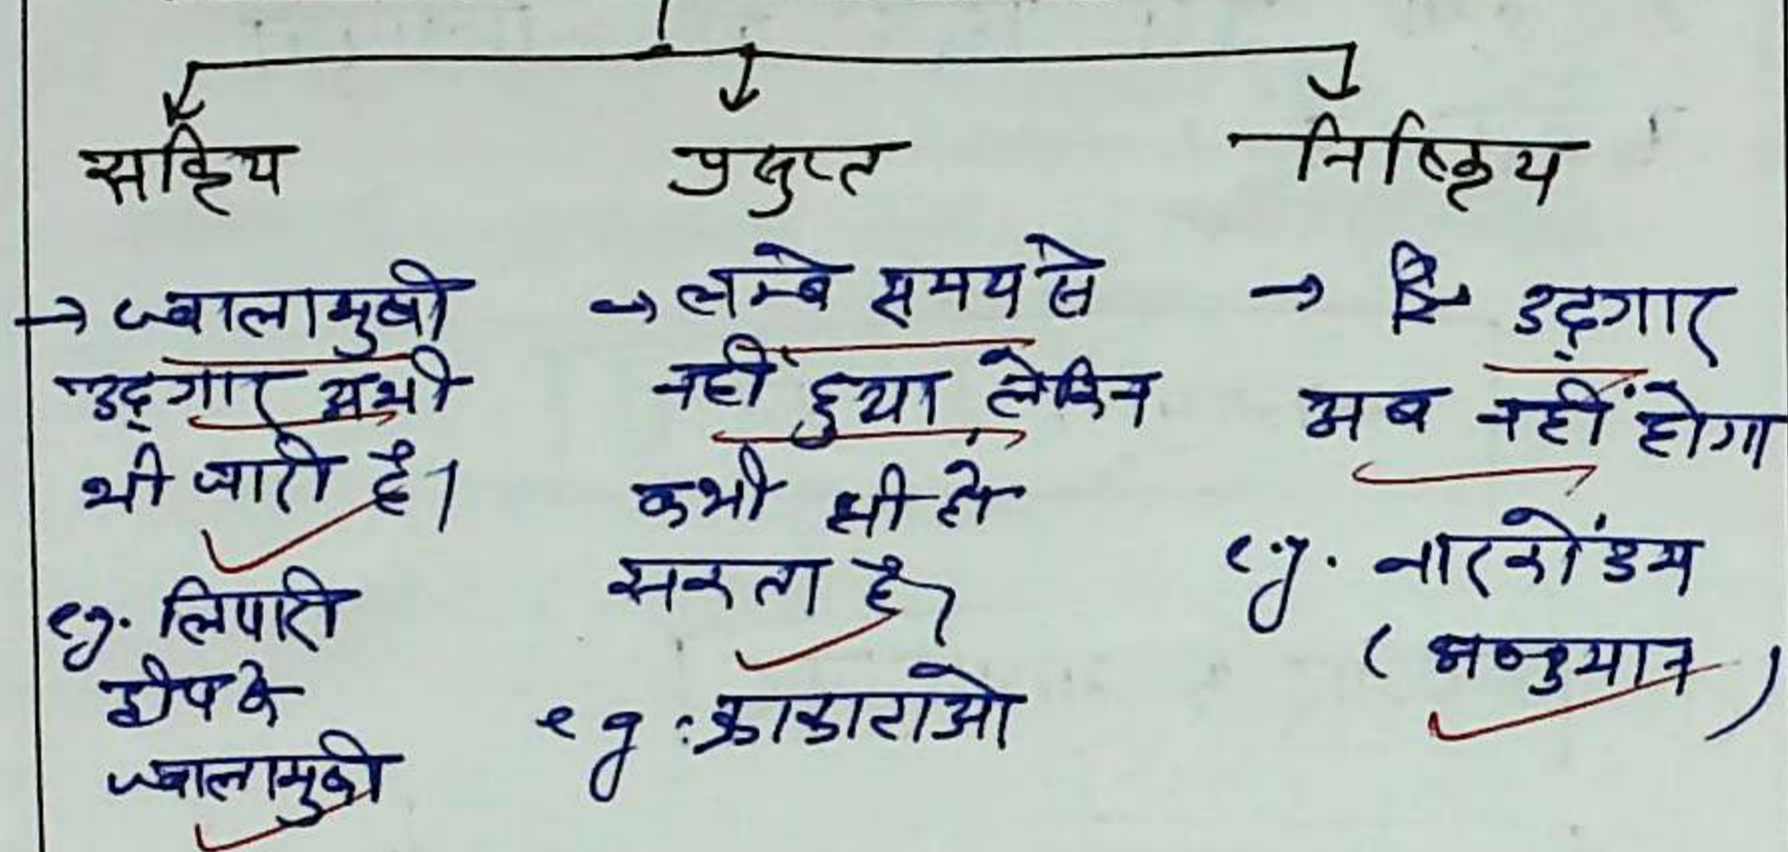 सक्रिय
→ ज्वालामुखी
उद्गार अभी
भी जारी है।
eg. लिपारी
द्वीप के
ज्वालामुखी
प्रसुप्त
→ लम्बे समय से
नहीं हुया लेकिन
कभी भी हो
सकता है।
eg. क्राकाटाओ
निष्क्रिय
→ उद्गार
अब नहीं होगा
e.g. नारकोंडम
(अण्डमान)